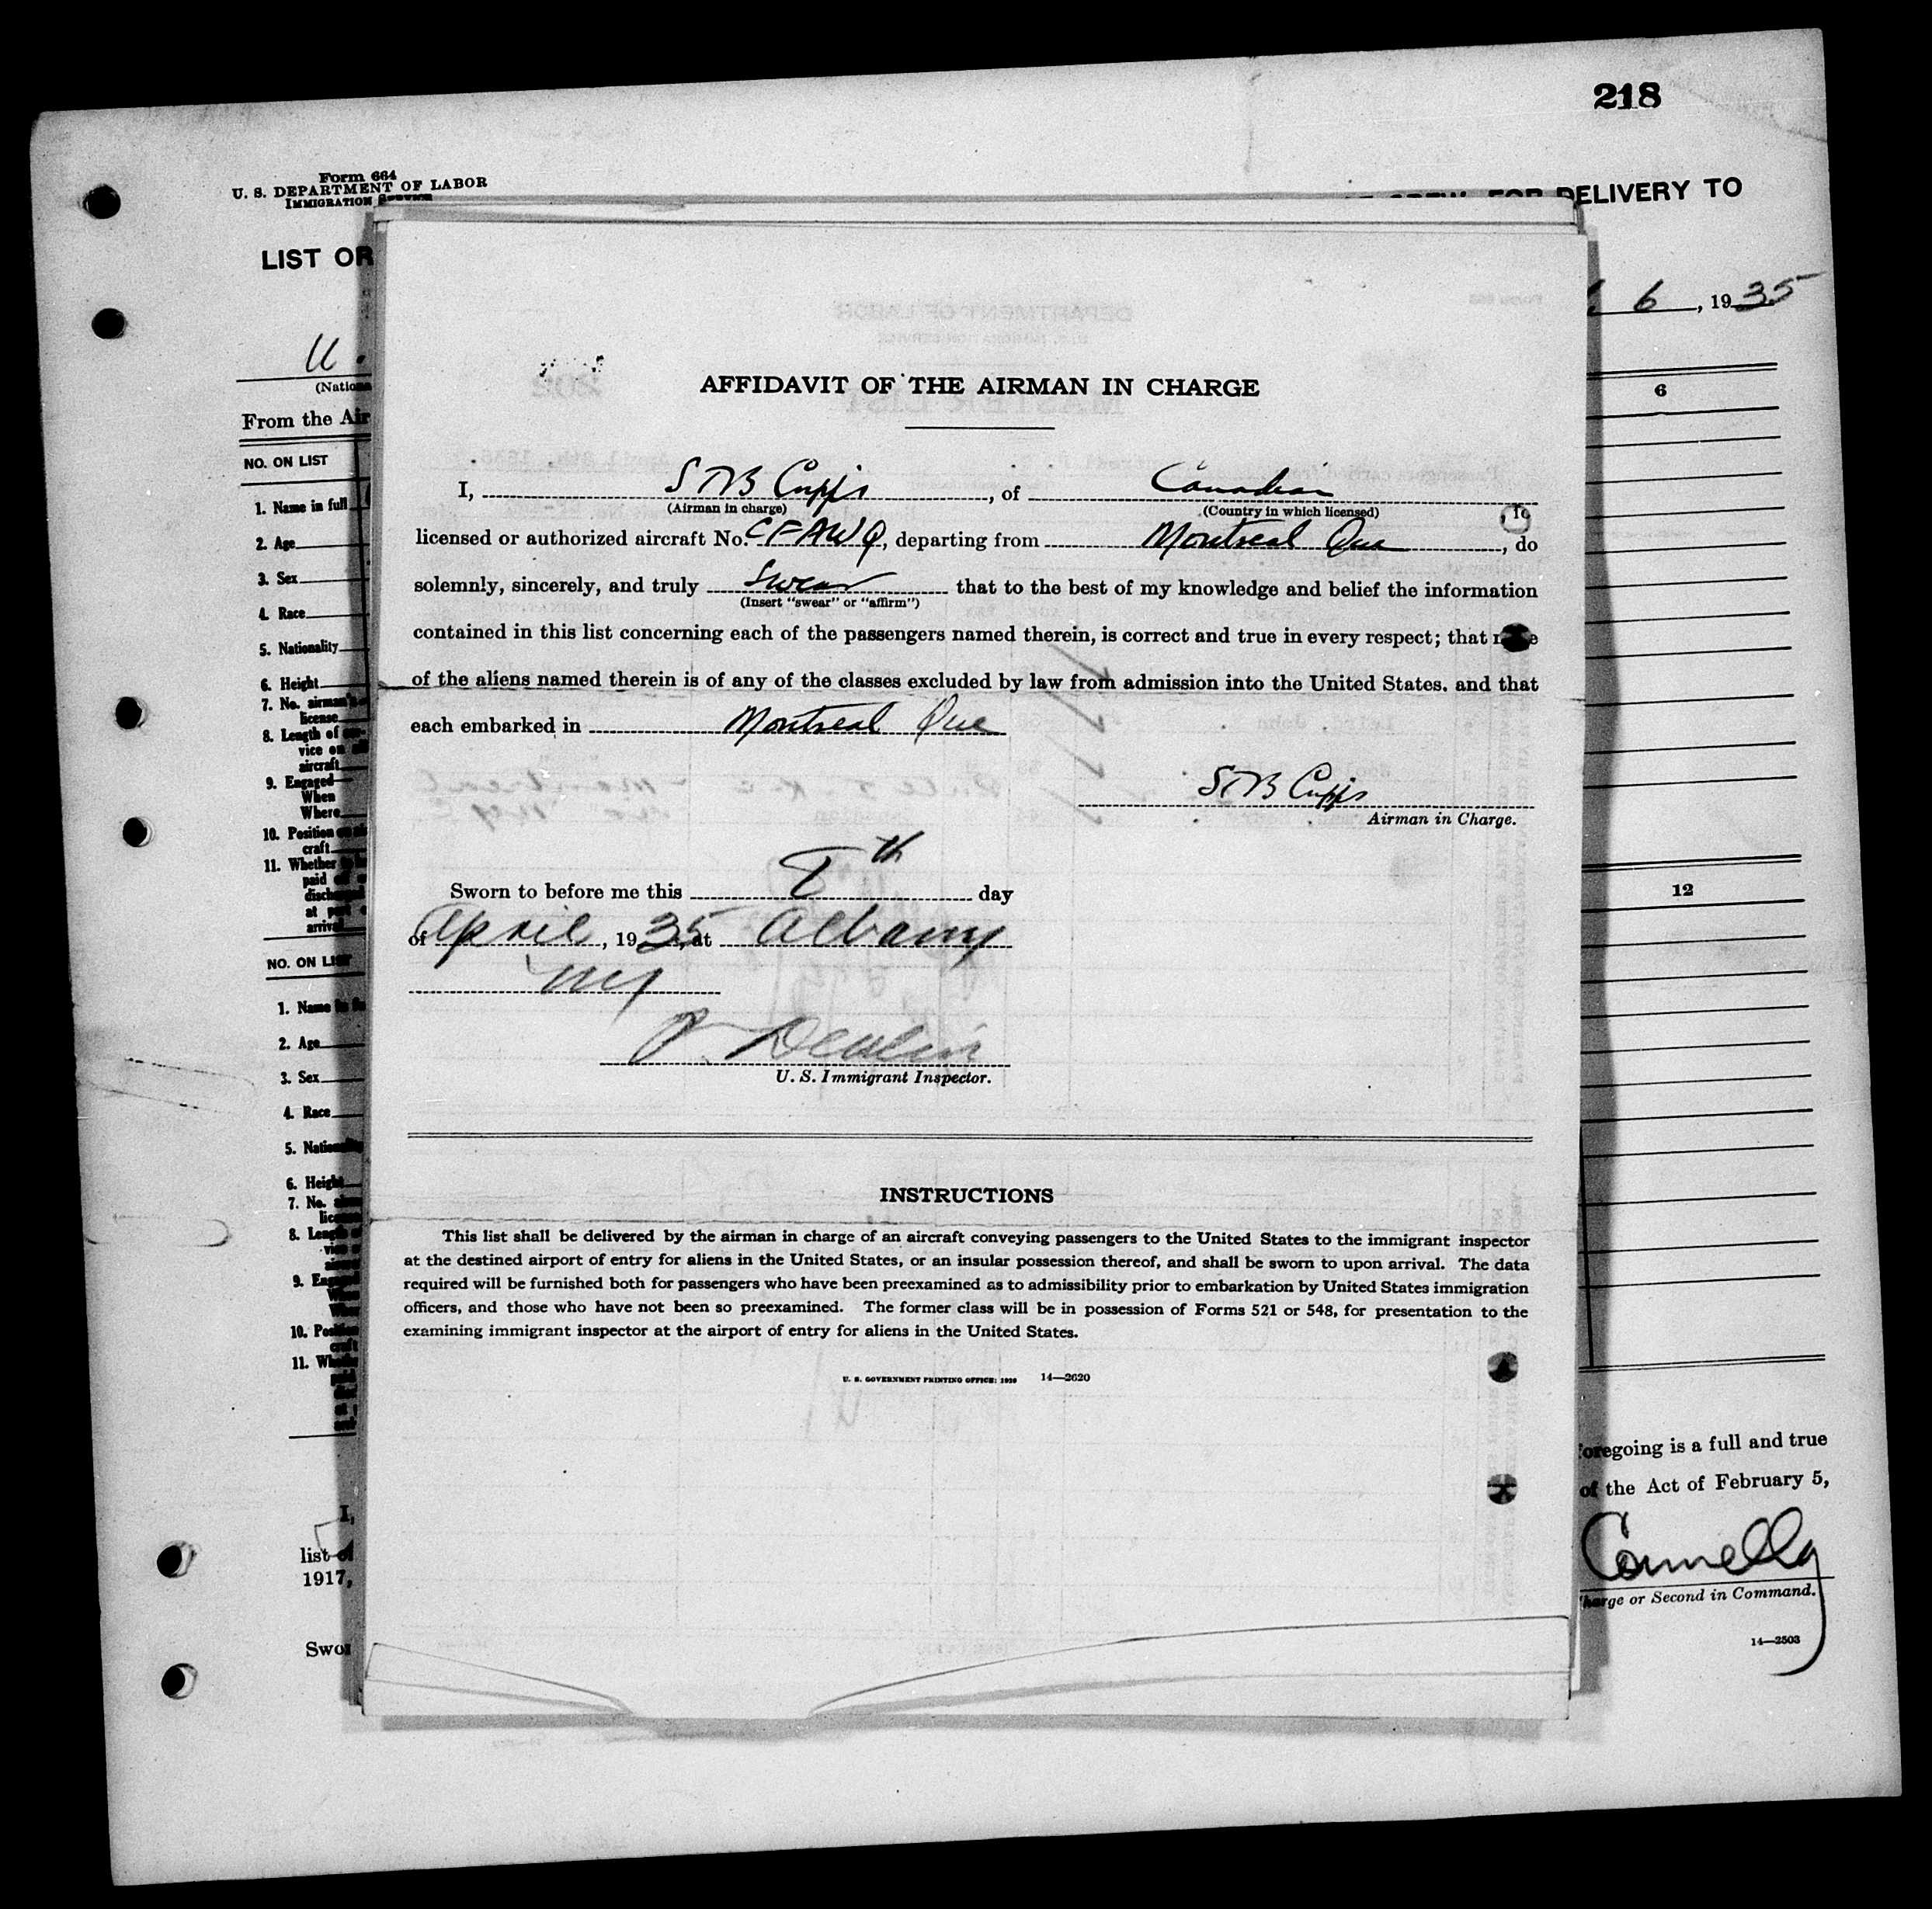 218
Form 664
U. S. DEPARTMENT OF LABOR
IMMIGRATION SERVICE
DELIVERY TO
LIST OR
6, 1935
U.
(Nationa
From the Air
NO. ON LIST
1. Name in full
2. Age
3. Sex
4. Race
5. Nationality
6. Height
7. No. airman's
license
8. Length of
vice on
aircraft
9. Engaged
When
Where
10. Position
craft
11. Whether
paid
disch
at
arriv
6
AFFIDAVIT OF THE AIRMAN IN CHARGE
I, S T B Cripps, of Canadian
(Airman in charge) (Country in which licensed)
licensed or authorized aircraft No. CFAWQ, departing from Montreal Que, do
solemnly, sincerely, and truly swear that to the best of my knowledge and belief the information
(Insert "swear" or "affirm")
contained in this list concerning each of the passengers named therein, is correct and true in every respect; that
of the aliens named therein is of any of the classes excluded by law from admission into the United States, and that
each embarked in Montreal Que
S T B Cripps
Airman in Charge.
Sworn to before me this th day
of April, 1935, at Albany
NY
U. S. Immigrant Inspector.
INSTRUCTIONS
This list shall be delivered by the airman in charge of an aircraft conveying passengers to the United States to the immigrant inspector
at the destined airport of entry for aliens in the United States, or an insular possession thereof, and shall be sworn to upon arrival. The data
required will be furnished both for passengers who have been preexamined as to admissibility prior to embarkation by United States immigration
officers, and those who have not been so preexamined. The former class will be in possession of Forms 521 or 548, for presentation to the
examining immigrant inspector at the airport of entry for aliens in the United States.
U. S. GOVERNMENT PRINTING OFFICE: 14—2620
12
NO. ON LIST
1. Name
2. Age
3. Sex
4. Race
5. Nation
6. Height
7. No.
8. Leng
9. Eng
10. Posi
11. Wh
I,
list
1917,
Swor
oregoing is a full and true
of the Act of February 5,
Connelly
harge or Second in Command.
14—2503